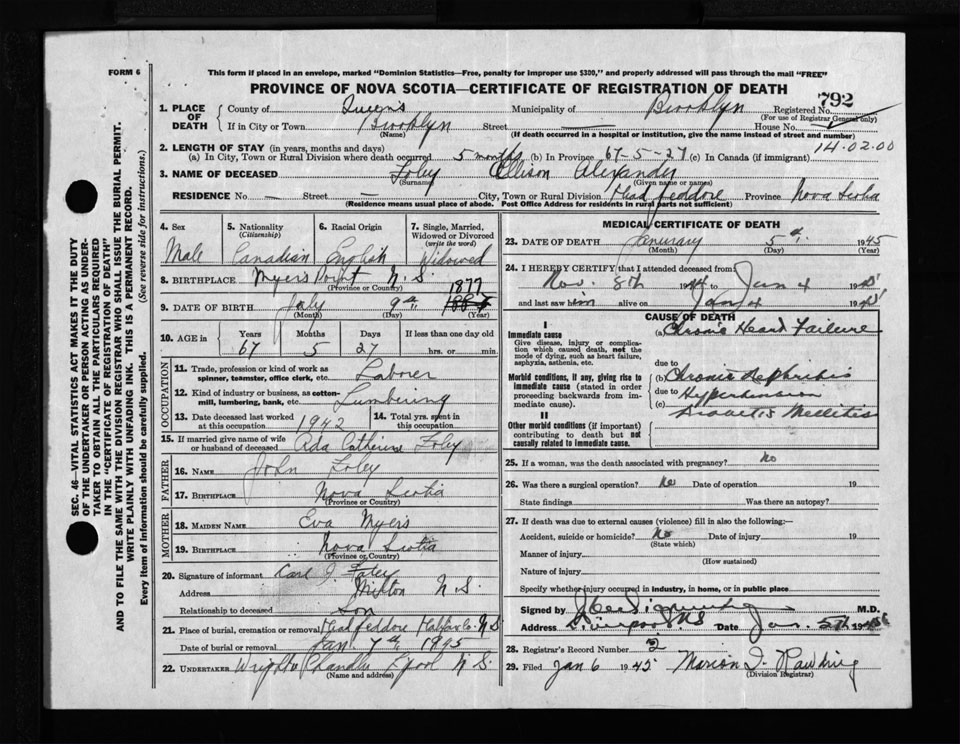 FORM 6
This form if placed in an envelope, marked "Dominion Statistics—Free, penalty for improper use $300," and properly addressed will pass through the mail "FREE"
PROVINCE OF NOVA SCOTIA—CERTIFICATE OF REGISTRATION OF DEATH
792
1. PLACE OF DEATH
County of Queens Municipality of Brooklyn Registered No.
(For use of Registrar General only)
If in City or Town Brooklyn Street — House No.
(Name) (If death occurred in a hospital or institution, give the name instead of street and number)
14.02.00
2. LENGTH OF STAY (in years, months and days)
(a) In City, Town or Rural Division where death occurred 5 months (b) In Province 67-5-27 (c) In Canada (if immigrant)
3. NAME OF DECEASED Foley Ellison Alexander
(Surname) (Given name or names)
RESIDENCE No. — Street — City, Town or Rural Division Head Jeddore Province Nova Scotia
(Residence means usual place of abode. Post Office Address for residents in rural parts not sufficient)
SEC. 46—VITAL STATISTICS ACT MAKES IT THE DUTY
OF THE UNDERTAKER OR PERSON ACTING AS UNDER-
TAKER TO OBTAIN ALL THE PARTICULARS REQUIRED
IN THE "CERTIFICATE OF REGISTRATION OF DEATH"
AND TO FILE THE SAME WITH THE DIVISION REGISTRAR WHO SHALL ISSUE THE BURIAL PERMIT.
WRITE PLAINLY WITH UNFADING INK. THIS IS A PERMANENT RECORD.
Every item of information should be carefully supplied. (See reverse side for instructions.)
4. Sex 5. Nationality (Citizenship) 6. Racial Origin 7. Single, Married, Widowed or Divorced (write the word)
Male Canadian English Widowed
8. BIRTHPLACE Myers Point N.S.
(Province or Country)
1877
9. DATE OF BIRTH July 9th 1887
(Month) (Day) (Year)
10. AGE in Years Months Days If less than one day old
67 5 27 hrs. or min.
OCCUPATION
11. Trade, profession or kind of work as spinner, teamster, office clerk, etc. Laborer
12. Kind of industry or business, as cotton-mill, lumbering, bank, etc. Lumbering
13. Date deceased last worked at this occupation 1942 14. Total yrs. spent in this occupation
15. If married give name of wife or husband of deceased Ada Catherine Foley
FATHER
16. NAME John Foley
17. BIRTHPLACE Nova Scotia
(Province or Country)
MOTHER
18. MAIDEN NAME Eva Myers
19. BIRTHPLACE Nova Scotia
(Province or Country)
20. Signature of informant Carl J. Foley
Address Milton N.S.
Relationship to deceased Son
21. Place of burial, cremation or removal Head Jeddore Halifax Co. N.S.
Date of burial or removal Jan. 7th 1945
22. UNDERTAKER Wright Chandler Lpool N.S.
(Name and address)
MEDICAL CERTIFICATE OF DEATH
23. DATE OF DEATH January 5th 1945
(Month) (Day) (Year)
24. I HEREBY CERTIFY that I attended deceased from
Nov. 8th 1944 to Jan 4 194
and last saw him alive on Jan 4 194
CAUSE OF DEATH
I
Immediate cause
Give disease, injury or complication which caused death, not the mode of dying, such as heart failure, asphyxia, asthenia, etc.
(a) Chronic Heart Failure
due to
Morbid conditions, if any, giving rise to immediate cause (stated in order proceeding backwards from immediate cause).
(b) Chronic Nephritis
due to Hypertension
(c)
II
Other morbid conditions (if important) contributing to death but not causally related to immediate cause.
Diabetes Mellitis
25. If a woman, was the death associated with pregnancy? No
26. Was there a surgical operation? No Date of operation 19
State findings Was there an autopsy?
27. If death was due to external causes (violence) fill in also the following:—
Accident, suicide or homicide? No Date of injury 19
(State which)
Manner of injury
(How sustained)
Nature of injury
Specify whether injury occurred in industry, in home, or in public place
Signed by M.D.
Address Liverpool N.S. Date Jan. 5th 1945
28. Registrar's Record Number 2
29. Filed Jan 6 1945 Marion I. Rawding
(Division Registrar)